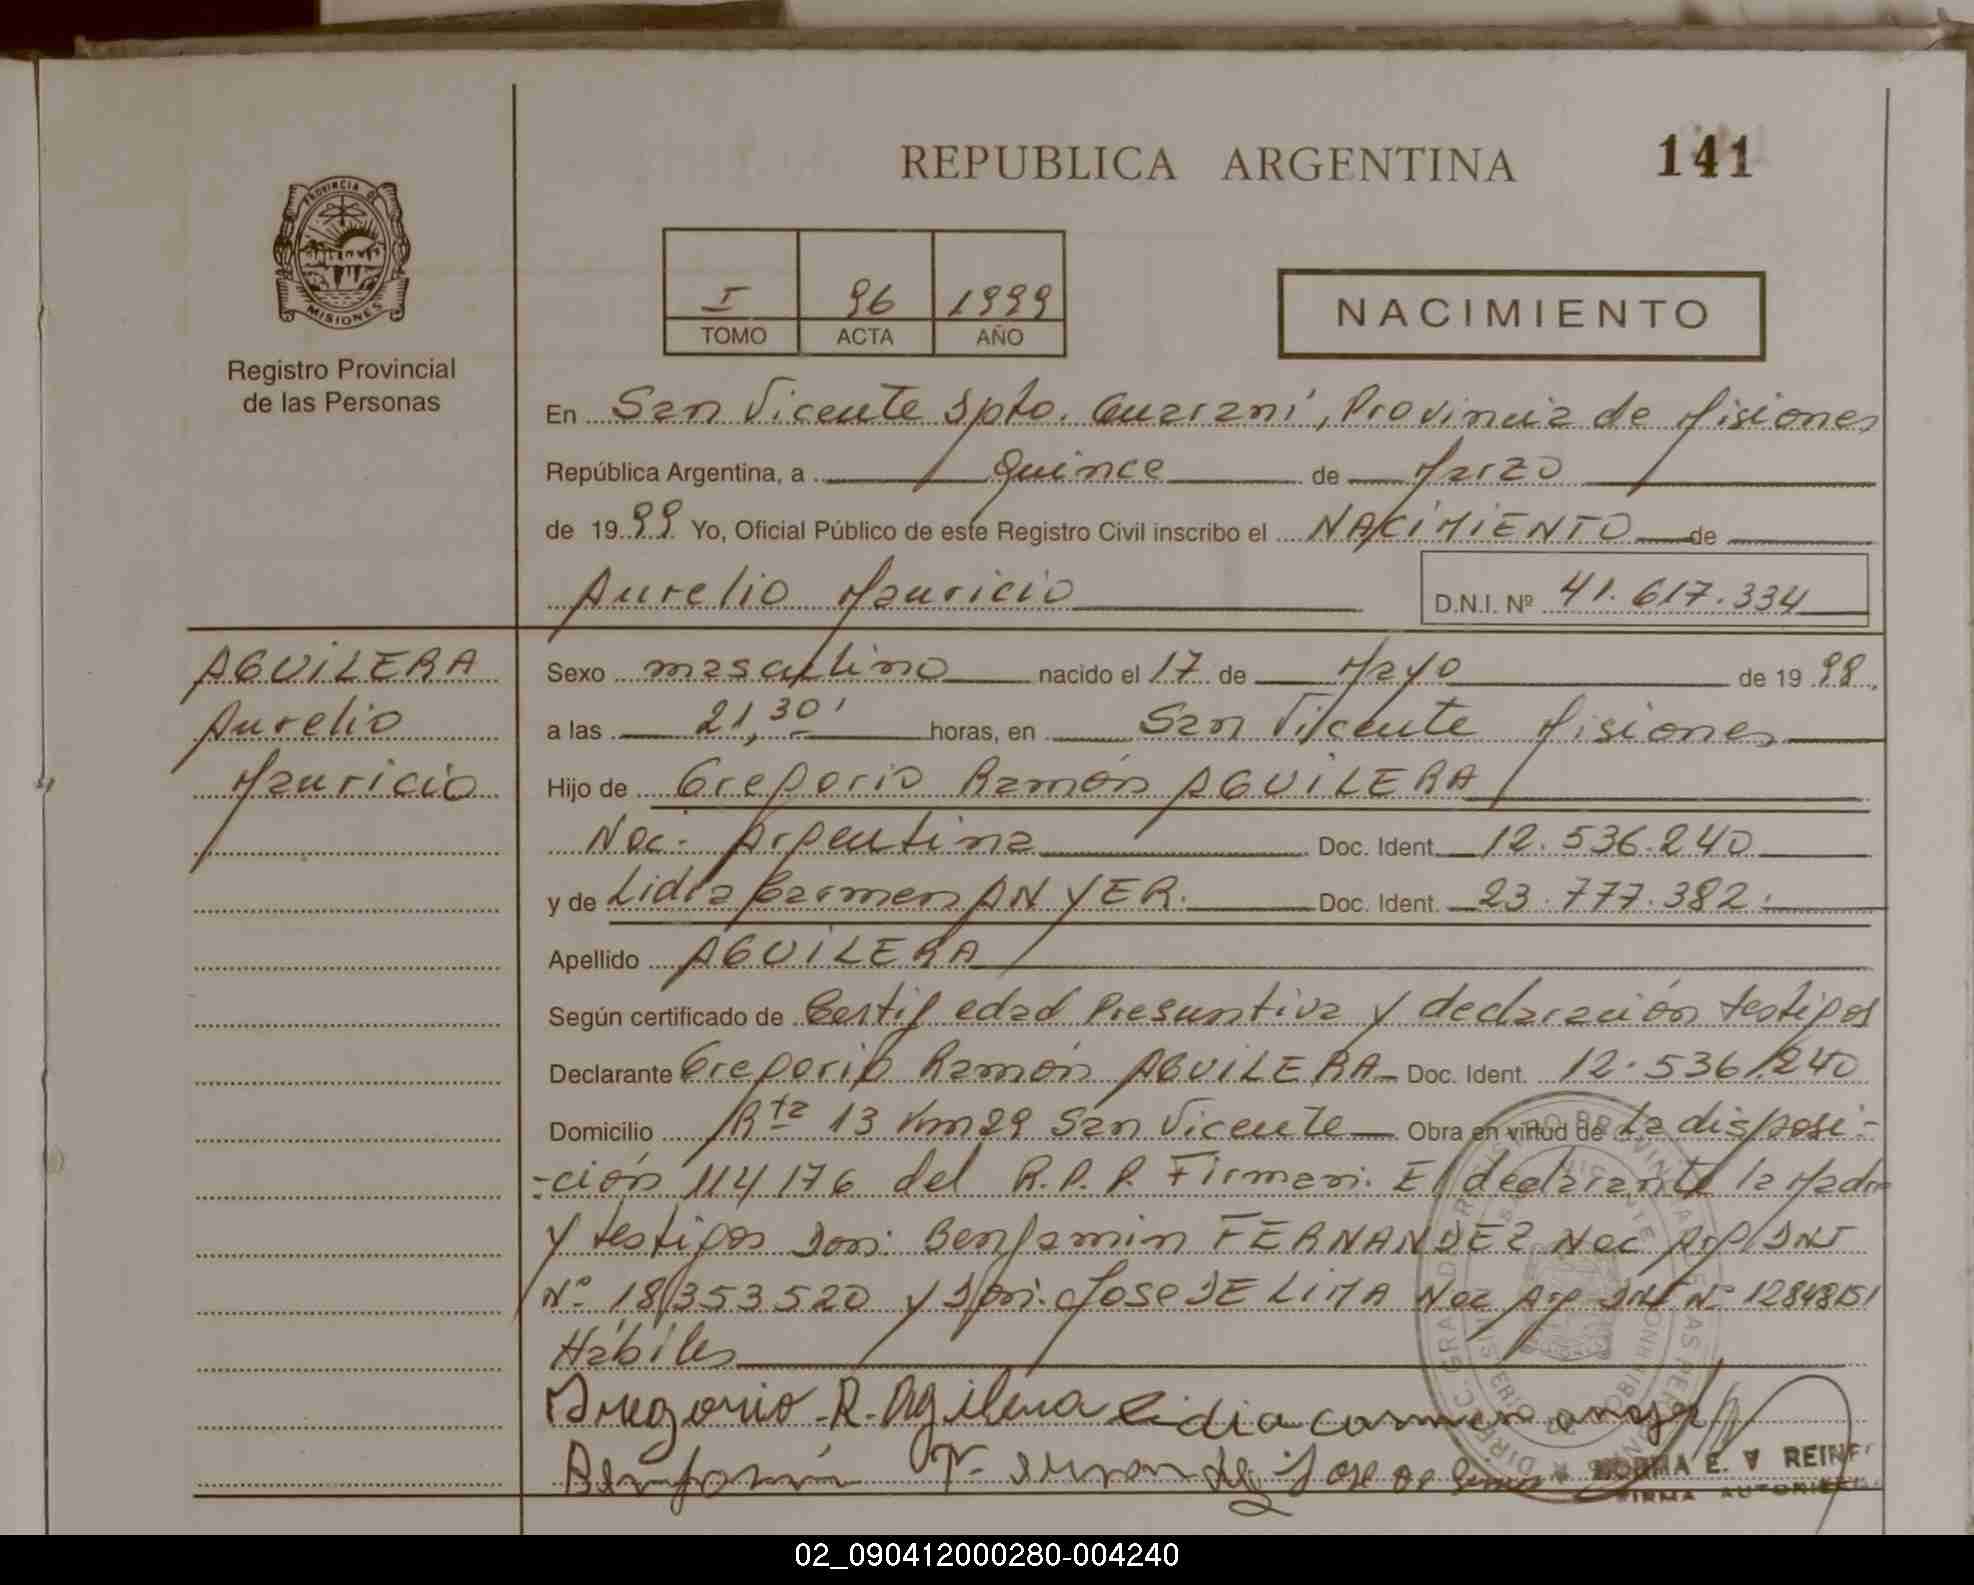 REPUBLICA ARGENTINA
141
PROVINCIA DE
MISIONES
Registro Provincial
de las Personas
I 96 1999
TOMO ACTA AÑO
NACIMIENTO
En San Vicente Dpto. Guaraní, Provincia de Misiones
República Argentina, a Quince de Marzo
de 1999 Yo, Oficial Público de este Registro Civil inscribo el NACIMIENTO de
Aurelio Mauricio D.N.I. Nº 41.617.334
AGUILERA
Aurelio
Mauricio
Sexo masculino nacido el 17 de Mayo de 1998.
a las 21,30' horas, en San Vicente Misiones
Hijo de Gregorio Ramón AGUILERA
Nac. Argentina Doc. Ident. 12.536.240
y de Lidia Carmen ANYER. Doc. Ident. 23.777.382.
Apellido AGUILERA
Según certificado de Certif edad Presuntiva y declaración testigos
Declarante Gregorio Ramón AGUILERA Doc. Ident. 12.536.240
Domicilio Rta 13 Km 29 San Vicente Obra en virtud de La disposi-
-ción 114/76 del R.P.P. Firman: El declarante la Madre
y testigos Don: Benjamin FERNANDEZ Nac Arg DNI
Nº 18.353520 y Don: Jose DE LIMA Nac Arg DNI Nº 12848151
Hábiles
Gregorio R. Agilera Lidia carmen anyer
Benjamin Jose de
NORMA E. V REINF
FIRMA AUTORIZADA
02_090412000280-004240